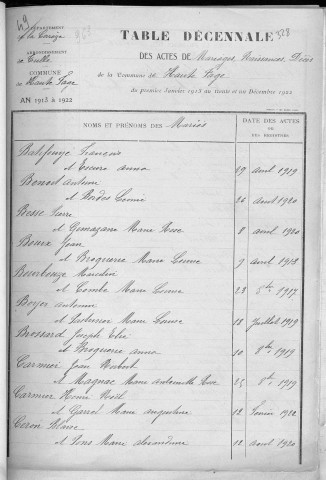 DÉPARTEMENT
de la Corrèze
ARRONDISSEMENT
de Tulle
COMMUNE
de Haute Fage
AN 1913 à 1922
TABLE DÉCENNALE
328
DES ACTES DE Mariages, Naissances, Décès
de la Commune de Haute Fage
du premier Janvier 1913 au trente et un Décembre 1922
NOMS ET PRÉNOMS DES Mariés
DATE DES ACTES
OU
DES REGISTRES
François
et Anna 29 avril 1919
Benoit Antoine
et Bordes Léonie 26 avril 1920
Besse Pierre
et Marie Rose 8 avril 1920
Jean
et Broquerie Marie Louise 9 avril 1918
et Combe Marie 23 8bre 1917
Boyer Antoine
et Marie Louise 18 Juillet 1919
Brossard Joseph
et Broquerie Anna 30 8bre 1919
Carmier Jean
et Magnac Marie Antoinette 25 8bre 1919
Carmier Henri Noël
et Marie Angeline 12 1922
Ceron Blaise
et Pons Marie Alexandrine 12 avril 1920